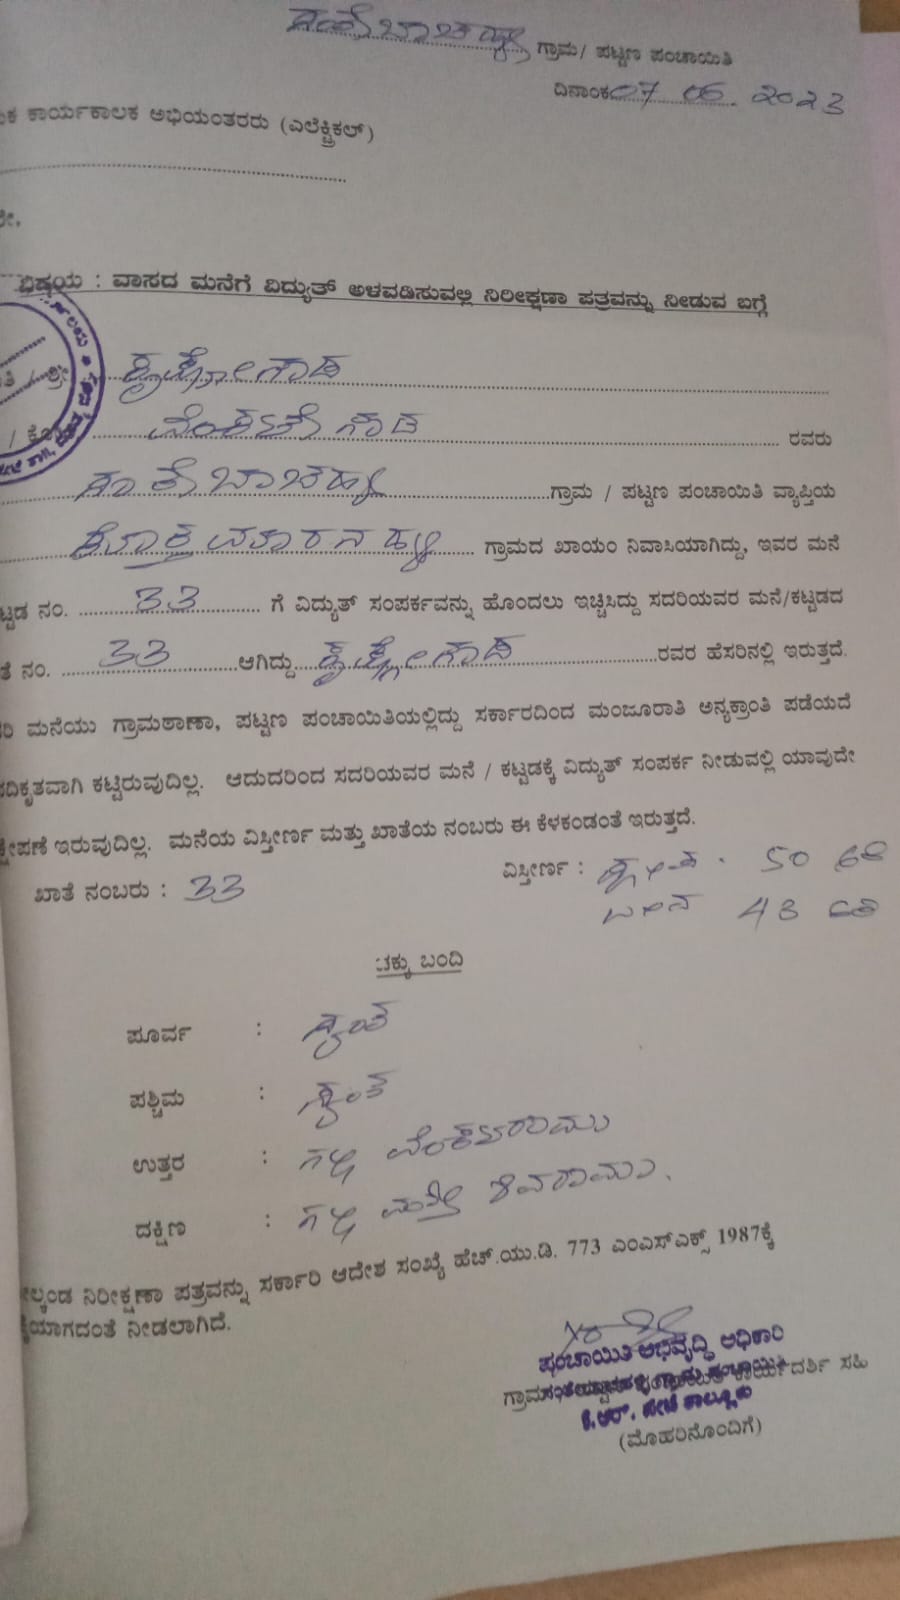 ಸಂತೇಬಾಚಹಳ್ಳಿ ಗ್ರಾಮ/ ಪಟ್ಟಣ ಪಂಚಾಯಿತಿ
ದಿನಾಂಕ 07 06. 2023
ಕಾರ್ಯಕಾಲಕ ಅಭಿಯಂತರರು (ಎಲೆಕ್ಟ್ರಿಕಲ್)
ವಿಷಯ : ವಾಸದ ಮನೆಗೆ ವಿದ್ಯುತ್ ಅಳವಡಿಸುವಲ್ಲಿ ನಿರೀಕ್ಷಣಾ ಪತ್ರವನ್ನು ನೀಡುವ ಬಗ್ಗೆ
ಶ್ರೀ ಕೃಷ್ಣೇಗೌಡ
ವೆಂಕಟೇಗೌಡ ರವರು
ಸಂತೇಬಾಚಹಳ್ಳಿ ಗ್ರಾಮ / ಪಟ್ಟಣ ಪಂಚಾಯಿತಿ ವ್ಯಾಪ್ತಿಯ
ಗ್ರಾಮದ ಖಾಯಂ ನಿವಾಸಿಯಾಗಿದ್ದು, ಇವರ ಮನೆ
ನಂ. 33 ಗೆ ವಿದ್ಯುತ್ ಸಂಪರ್ಕವನ್ನು ಹೊಂದಲು ಇಚ್ಚಿಸಿದ್ದು ಸದರಿಯವರ ಮನೆ/ಕಟ್ಟಡದ
ನಂ. 33 ಆಗಿದ್ದು ಕೃಷ್ಣೇಗೌಡ ರವರ ಹೆಸರಿನಲ್ಲಿ ಇರುತ್ತದೆ.
ಮನೆಯು ಗ್ರಾಮಠಾಣಾ, ಪಟ್ಟಣ ಪಂಚಾಯಿತಿಯಲ್ಲಿದ್ದು ಸರ್ಕಾರದಿಂದ ಮಂಜೂರಾತಿ ಅನ್ಯಕ್ರಾಂತಿ ಪಡೆಯದೆ
ಕಟ್ಟಿರುವುದಿಲ್ಲ. ಆದುದರಿಂದ ಸದರಿಯವರ ಮನೆ / ಕಟ್ಟಡಕ್ಕೆ ವಿದ್ಯುತ್ ಸಂಪರ್ಕ ನೀಡುವಲ್ಲಿ ಯಾವುದೇ
ಇರುವುದಿಲ್ಲ. ಮನೆಯ ವಿಸ್ತೀರ್ಣ ಮತ್ತು ಖಾತೆಯ ನಂಬರು ಈ ಕೆಳಕಂಡಂತೆ ಇರುತ್ತದೆ.
ಖಾತೆ ನಂಬರು : 33 ವಿಸ್ತೀರ್ಣ : 50
43
ಚಕ್ಕು ಬಂದಿ
ಪೂರ್ವ : ಸ್ವಂತ
ಪಶ್ಚಿಮ : ಸ್ವಂತ
ಉತ್ತರ : ಗಲ್ಲಿ ವೆಂಕಟರಾಮು
ದಕ್ಷಿಣ : ಗಲ್ಲಿ ಮತ್ತೆ ಶಿವರಾಮು.
ನಿರೀಕ್ಷಣಾ ಪತ್ರವನ್ನು ಸರ್ಕಾರಿ ಆದೇಶ ಸಂಖ್ಯೆ ಹೆಚ್.ಯು.ಡಿ. 773 ಎಂಎಸ್‌ಎಕ್ಸ್ 1987ಕ್ಕೆ
ನೀಡಲಾಗಿದೆ.
ಪಂಚಾಯಿತಿ ಅಭಿವೃದ್ಧಿ ಅಧಿಕಾರಿ
ಗ್ರಾಮ ಕಾರ್ಯದರ್ಶಿ ಸಹಿ
ಕೆ.ಆರ್. ಪೇಟೆ ತಾಲ್ಲೂಕು
(ಮೊಹರಿನೊಂದಿಗೆ)